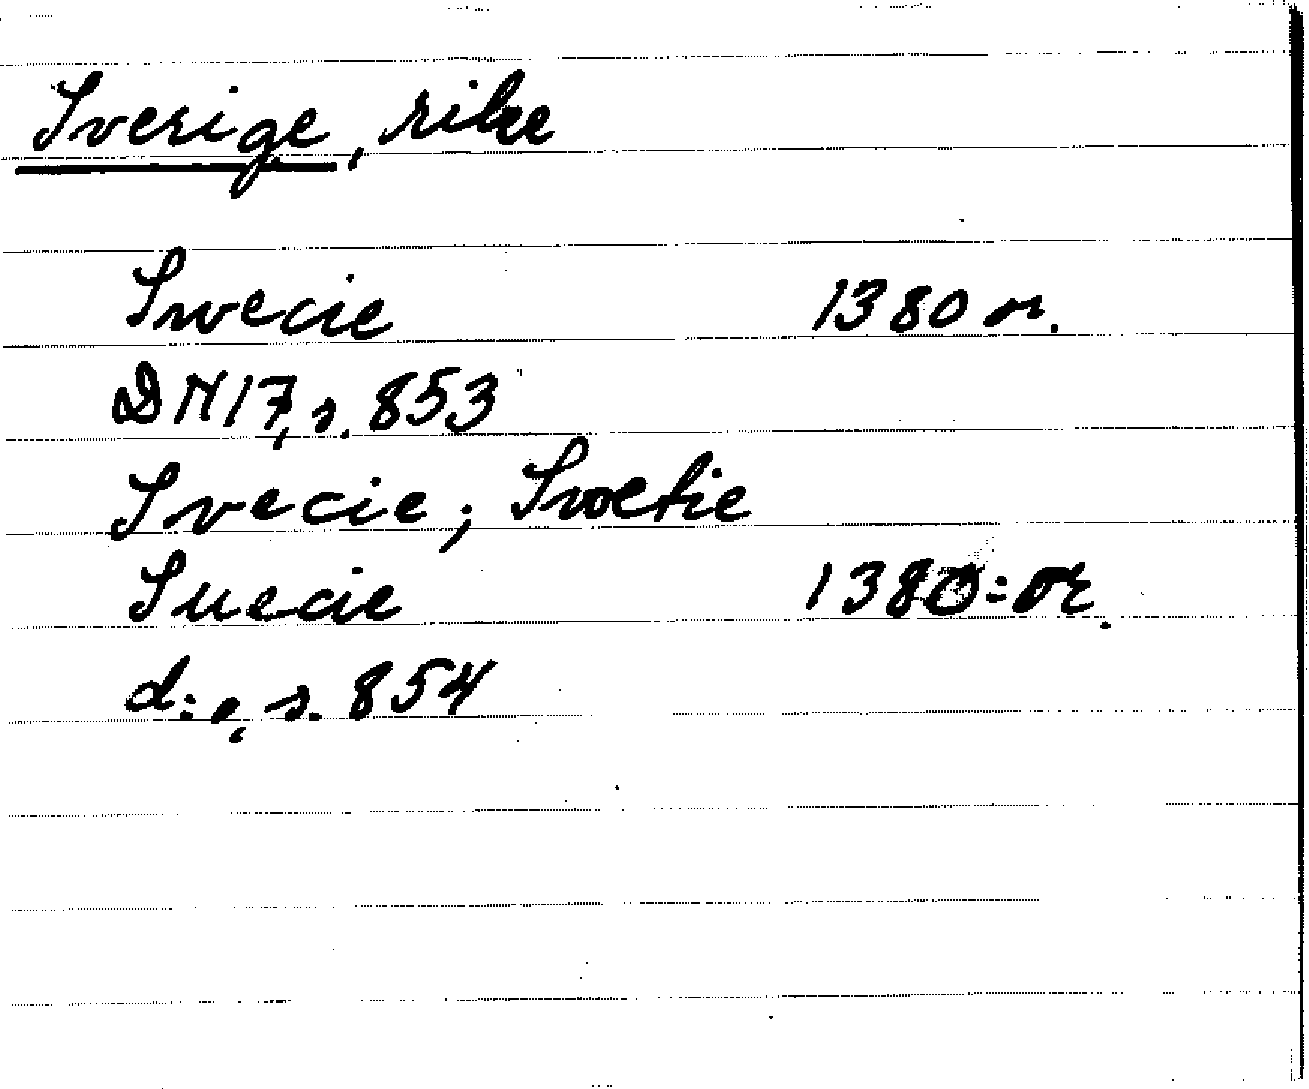 Sverige, rike
Swecie 1380 or.
DN 17, s. 853
Svecie; Swetie
Suecie 1380: or.
d:o, s. 854